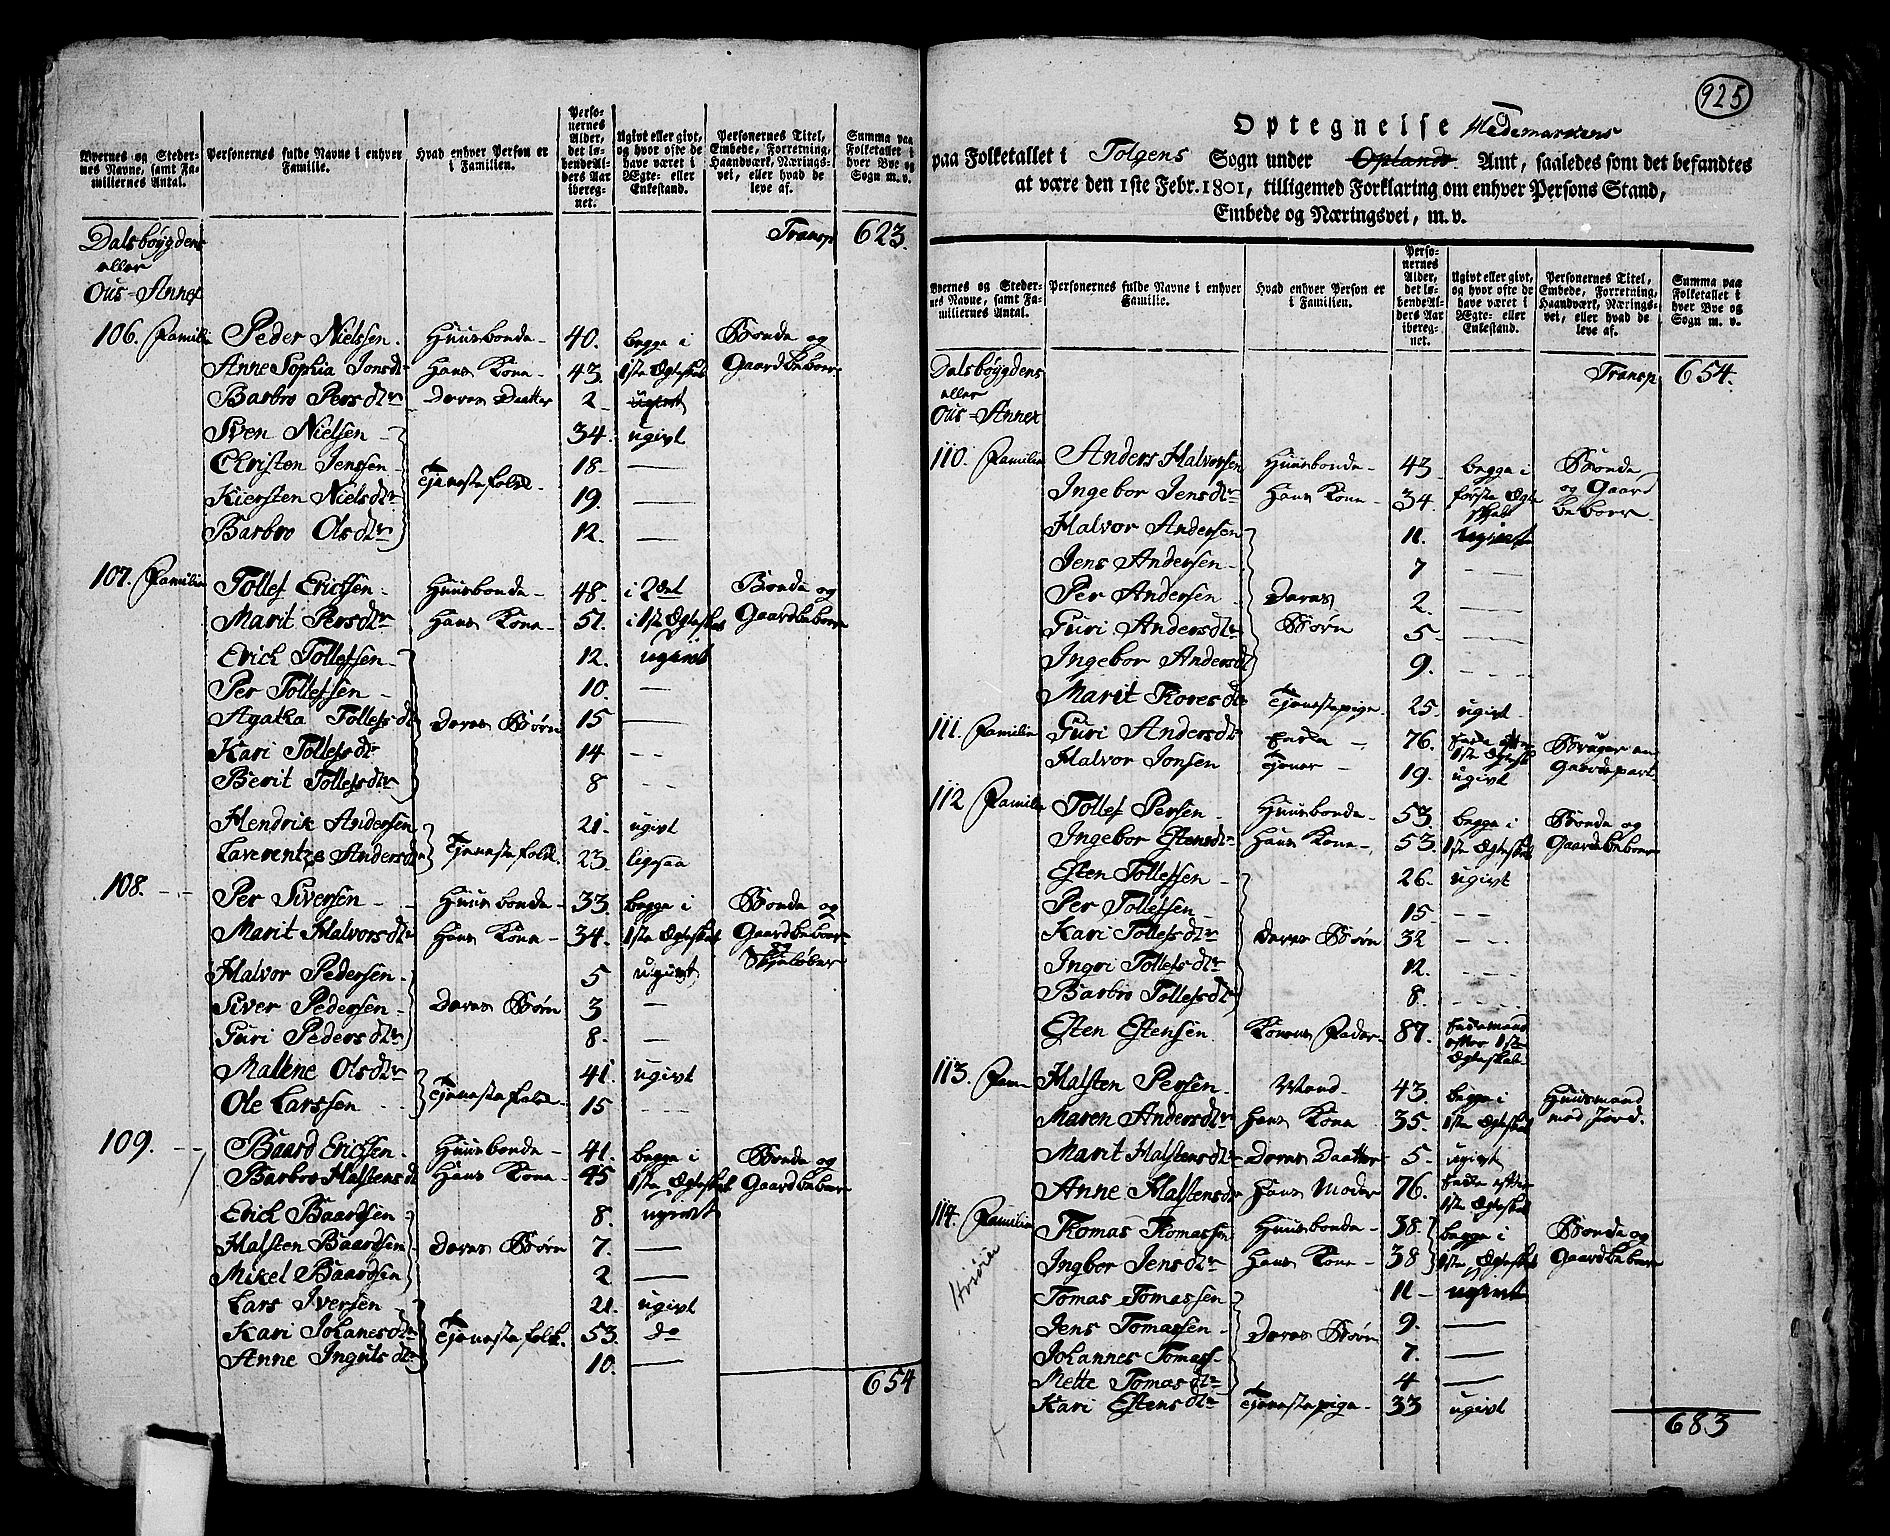 Byernes og Steder- Personernes fulde Navne i enhver Hvad enhver Person er Perso- Ugivt eller givt, Personernes Titel, Summa paa
nes Navne, samt Fa- Familie. i Familien. nernes og hvor ofte de Embede, Forretning, Folketallet i
miliernes Antal. Alder, have været i Haandværk, Nærings- hver Bye og
det lø- Ægte- eller vei, eller hvad de Sogn m. v.
bende Al- Enkestand. leve af.
ders Aar
iberegnet.
Dalsböygdens Transp 623.
eller
Ous-Annex
106. Familie Peder Nielssen. Huusbonde 40. begge i Bonde og
Anne Sophia Jonsdr Hans Kone 43. 1ste Ægteskab Gaardbeboer
Barbro Persdtr Deres Daatter 2 ugivt
Sven Nielsen 34. ugivt
Christen Jenssen 18 —
Kiersten Nielsdtr Tjenestefolk 19. —
Barbro Olsdtr 12. —
107. Familie Tollef Ericksen Huusbonde 48. i 2det Bonde og
Marit Persdtr Hans Kone 51. i 1ste Ægteskab Gaardbeboer
Erick Tollefsen 12. ugivt
Per Tollefsen 10. —
Agatha Tollefsdr Deres Børn 15 —
Kari Tollefsdtr 14 —
Berit Tollefsdtr 8 —
Hendrik Andersen 21. ugivt
Laverentze Andersdr Tjenestefolk 23. ligesaa
108. Per Siversen Huusbonde 33. begge i Bonde og
Marit Halvorsdtr Hans Kone 34. 1ste Ægteskab Gaardbeboer
Skieløber
Halvor Pedersen 5 ugivt
Siver Pedersen Deres Børn 3 —
Guri Pedersdtr 8. —
Malene Olsdtr 41. ugivt
Ole Larssen Tjenestefolk 15 —
109. Baard Ericksen Huusbonde 41. begge i Bonde og
Barbro Halstensdr Hans Kone 45 1ste Ægteskab Gaardbeboer
Erick Baardsen 8. ugivt
Halsten Baardsen Deres Børn 7. —
Mikel Baardsen 2 —
Lars Iversen 21. ugivt
Kari Johanesdtr Tjenestefolk 53. do
Anne Ingulsdtr 10. —
654
925
Optegnelse Hedemarkens
paa Folketallet i Tolgens Sogn under Oplands Amt, saaledes som det befandtes
at være den 1ste Febr. 1801, tilligemed Forklaring om enhver Persons Stand,
Embede og Næringsvei, m. v.
Byernes og Steder- Personernes fulde Navne i enhver Hvad enhver Person er Perso- Ugivt eller givt, Personernes Titel, Summa paa
nes Navne, samt Fa- Familie. i Familien. nernes og hvor ofte de Embede, Forretning, Folketallet i
miliernes Antal. Alder, have været i Haandværk, Nærings- hver Bye og
det lø- Ægte- eller vei, eller hvad de Sogn m. v.
bende Al- Enkestand. leve af.
ders Aar
ibereg-
net.
Dalsböygdens Transp 654.
eller
Ous-Annex
110. Familie Anders Halvorsen Huusbonde 43. begge i Bonde
Ingebor Jensdtr Hans Kone 34. første Ægte og Gaard
skab beboer
Halvor Andersen 11. ugivt
Jens Andersen 7 —
Per Andersen Deres 2. —
Guri Andersdtr Børn 5. —
Ingebor Andersdtr 9. —
Marit Toresdr Tjenestepige 25. ugivt
111. Familie Guri Andersdtr Enke 76. Enke efter Bruger en
1ste Ægtesk
Halvor Jonsen Tjener 19. ugivt Gaardepart.
112 Familie Tollef Persen Huusbonde 53. begge i Bonde og
Ingebor Estensdtr Hans Kone 53. 1ste Ægteskab Gaardbeboer
Esten Tollefsen 26. ugivt
Per Tollefsen 15 —
Kari Tollefsdtr Deres Børn 32 —
Ingri Tollefsdtr 12. —
Barbro Tollefsdtr 8. —
Esten Estensen Konens Fader 87. Enkemand
efter 1ste
Ægteskab
113. Fam Halsten Persen Mand 43. begge i Huusmand
Maren Andersdtr Hans Kone 35. 1ste Ægteskab med Jord.
Marit Halstensdtr Deres Daatter 5. ugivt
Anne Halstensdr Hans Moder 76. Enke efter
1ste Ægteskab
114. Familie Thomas Thomassen Huusbonde 38. begge i Bonde og
Ingbor Jensdtr Hans Kone 38 1ste Ægteskab Gaardbeboer
Tomas Tomassen 11 ugivt
Jens Tomassen Deres Børn 9. —
Johannes Tomass 7. —
Mette Tomasdtr 4 —
Kari Estensdtr Tjenestepige 33 ugivt
683